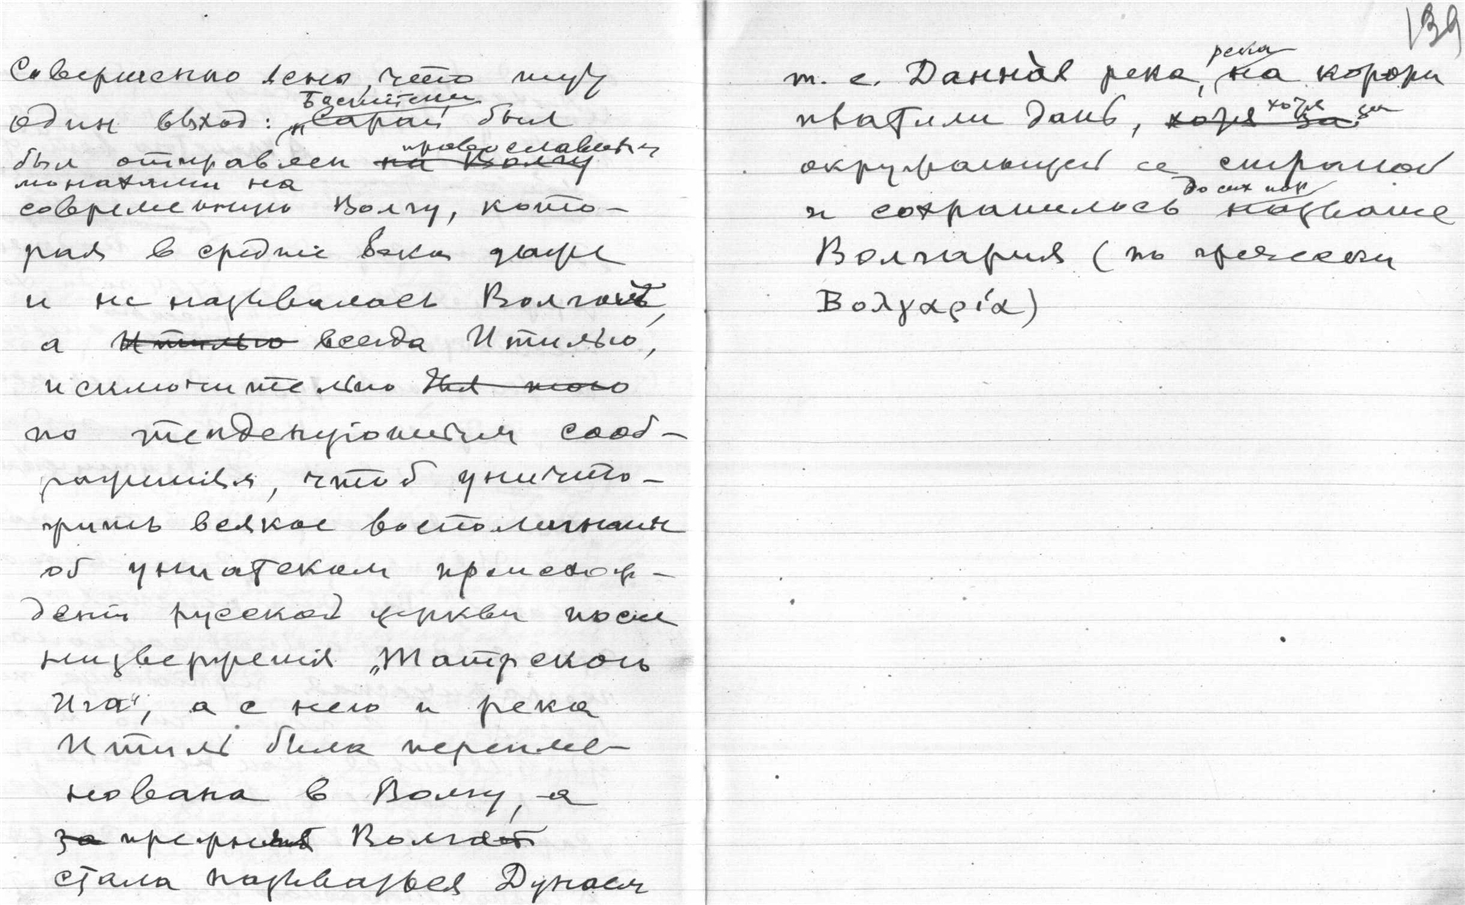 139
Совершенно ясно, что тут
Батыевский
один выход: „Сарай был
православными
был отправлен на Волгу
монахами на
современную Волгу, кото-
рая в средние века даже
и не называлась Волгой,
а Итилью всегда Итилью,
исключительно для того
по тенденциозным сооб-
ражениям, чтоб уничто-
жить всякое воспоминание
об униатском происхож-
дении русской церкви после
низвержения „Татарского
Ига“, а с нею и река
Итиль была переиме-
нована в Волгу, а
за прежняя Волга
стала называться Дунаем
река
т. е. Данная река, на которой
хотя за
платили дань, хотя за
окружающей ее страной
до сих пор
и сохранилось название
Волгария (по гречески
Βολγαρία)